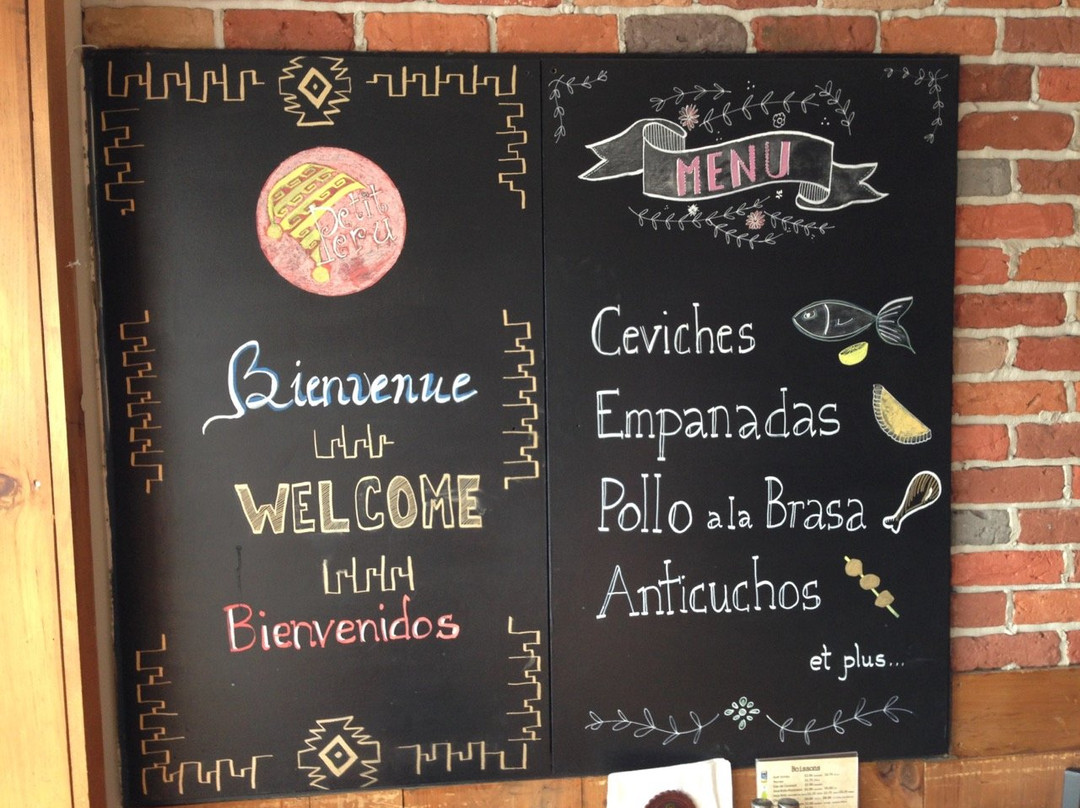 Petit
Peru
Bienvenue
WELCOME
Bienvenidos
MENU
Ceviches
Empanadas
Pollo a la Brasa
Anticuchos
et plus...
Boissons